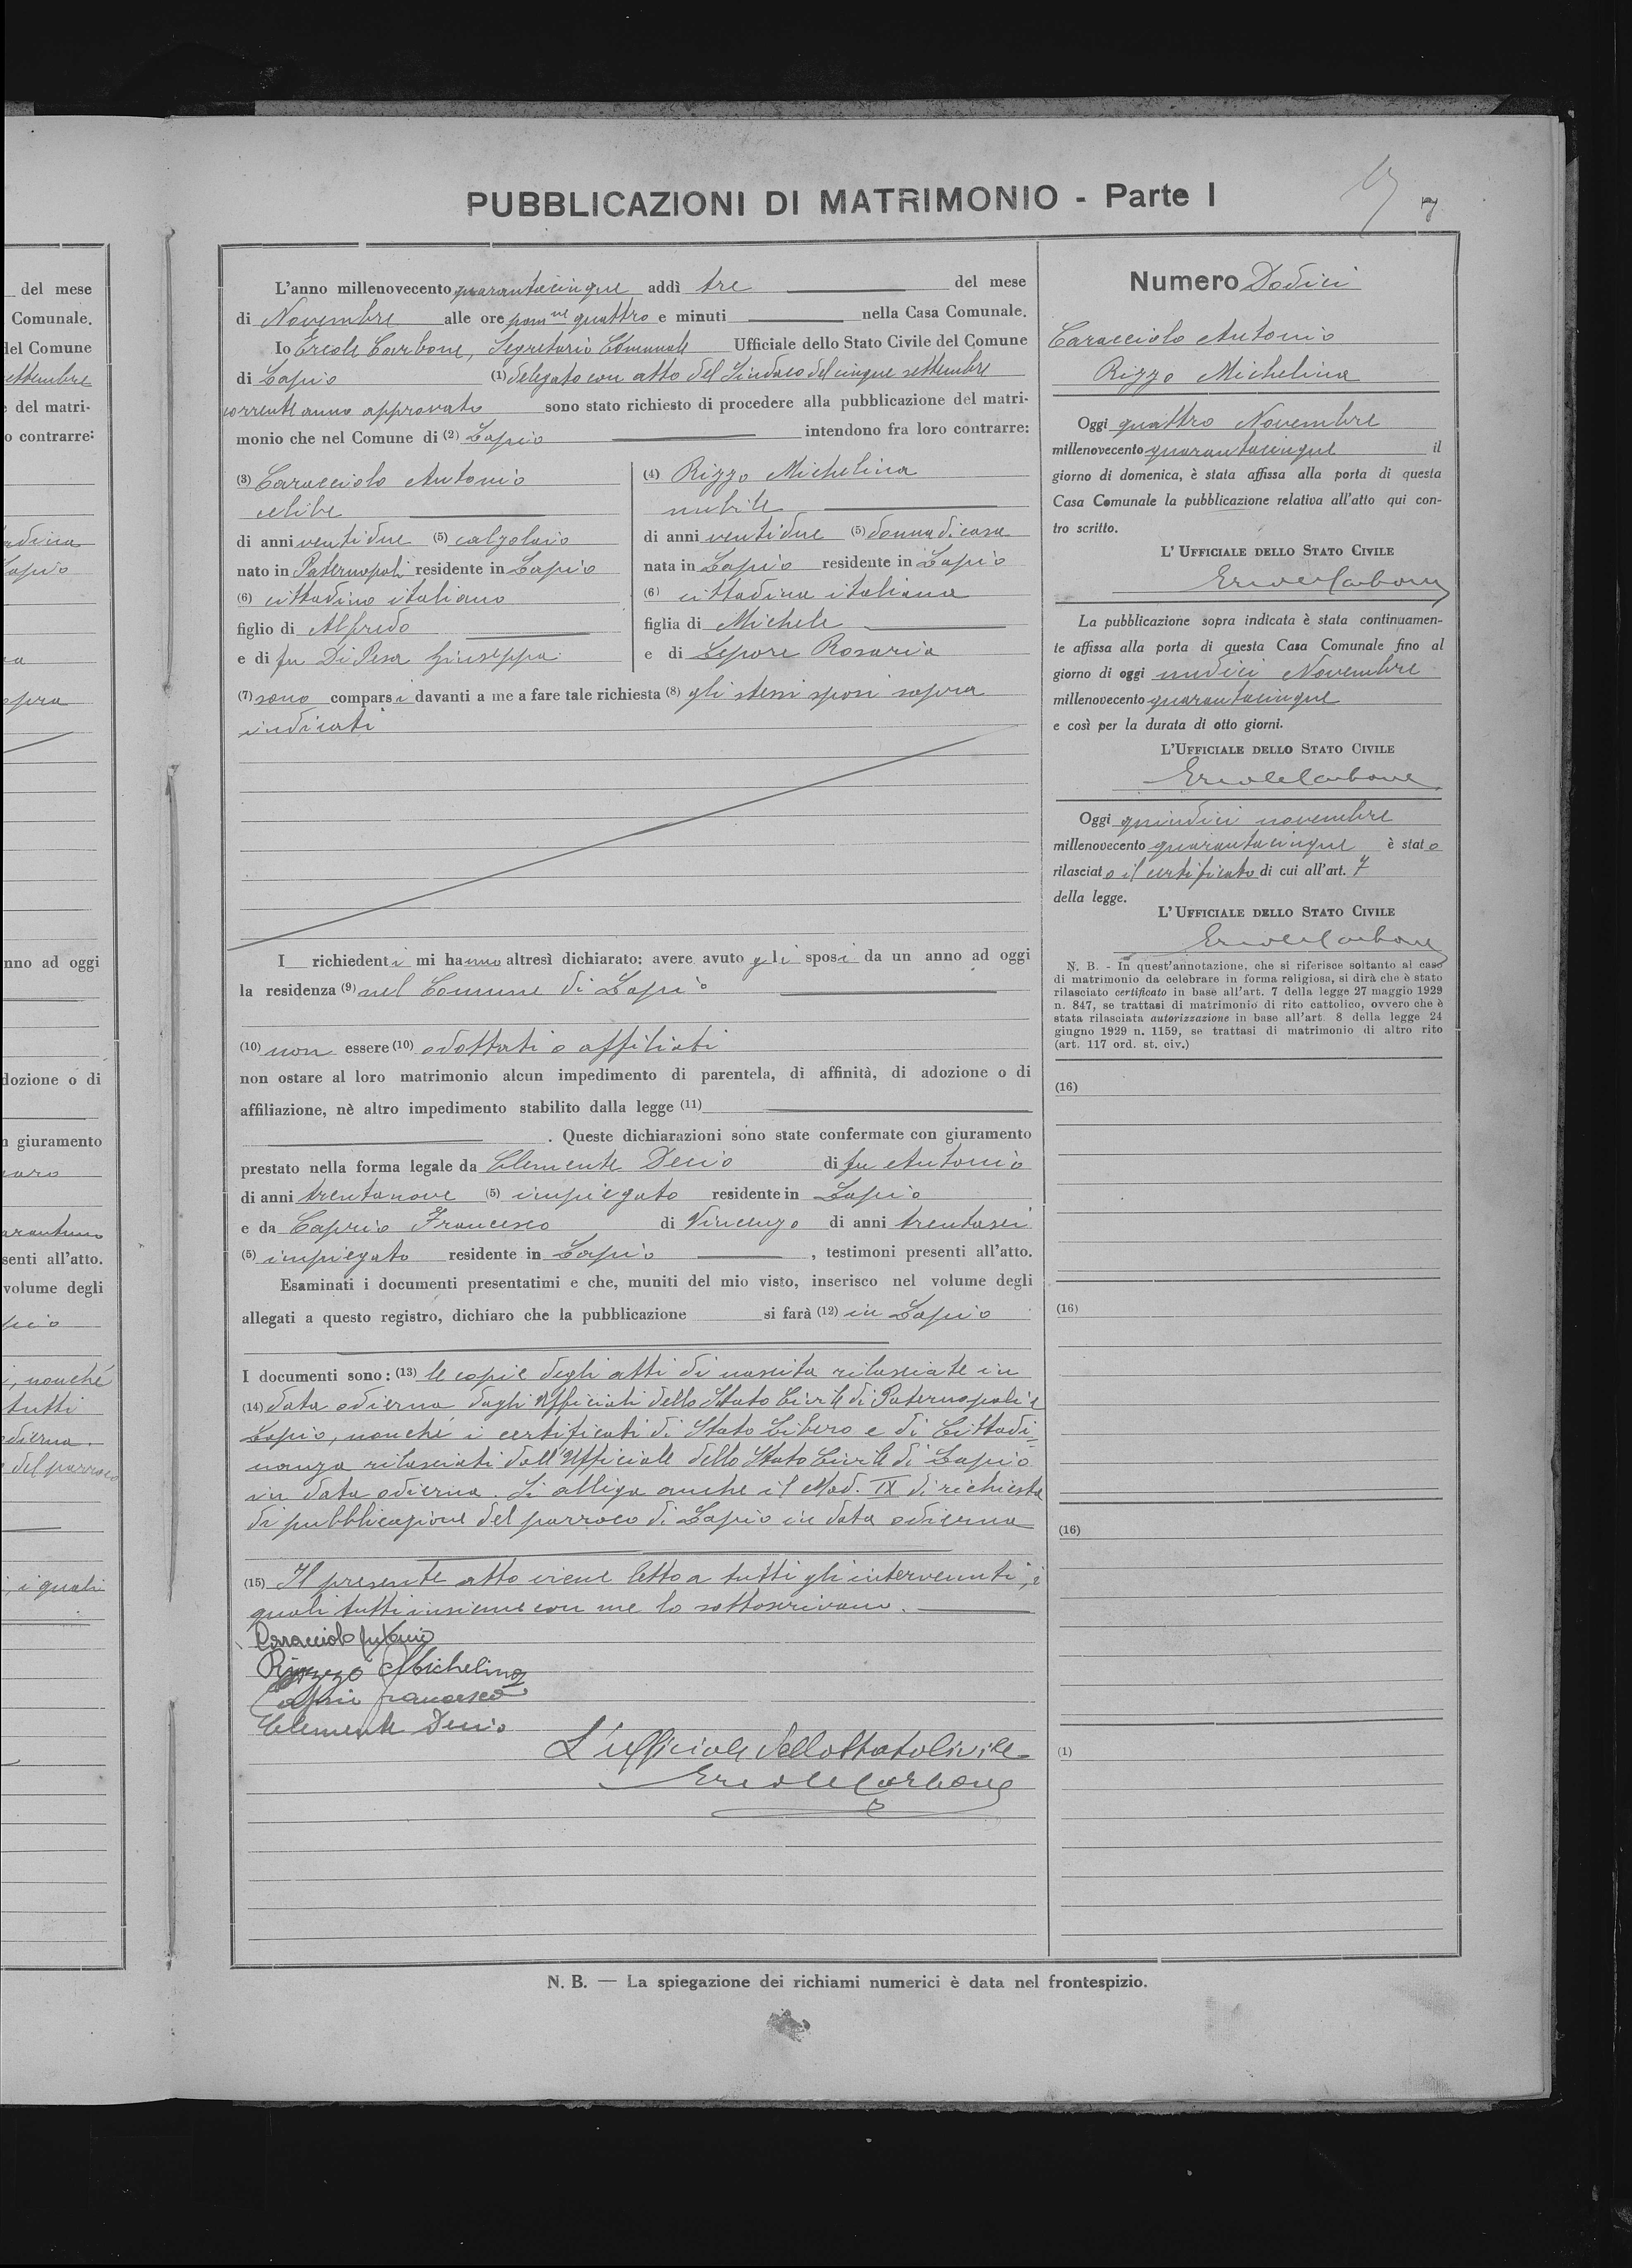 PUBBLICAZIONI DI MATRIMONIO - Parte I
7
del mese
Comunale.
del Comune
settembre
del matri-
o contrarre:
nno ad oggi
dozione o di
giuramento
senti all'atto.
volume degli
, nonché
tutti
odierna.
del parroco
, i quali
L'anno millenovecento quarantacinque addì tre del mese
di Novembre alle ore pom.ne quattro e minuti nella Casa Comunale.
Io Ercole Carbone, Segretario Comunale Ufficiale dello Stato Civile del Comune
di Lapio (1) delegato con atto del Sindaco del cinque settembre
corrente anno approvato sono stato richiesto di procedere alla pubblicazione del matri-
monio che nel Comune di (2) Lapio intendono fra loro contrarre:
(3) Caracciolo Antonio
celibe
di anni ventidue (5) calzolaio
nato in Paternopoli residente in Lapio
(6) cittadino italiano
figlio di Alfredo
e di fu Di Pesa Giuseppa
(4) Rizzo Michelina
nubile
di anni ventidue (5) donna di casa
nata in Lapio residente in Lapio
(6) cittadina italiana
figlia di Michele
e di Lepore Rosaria
(7) sono comparsi davanti a me a fare tale richiesta (8) gli stessi sposi sopra
indicati
I richiedenti mi hanno altresì dichiarato: avere avuto gli sposi da un anno ad oggi
la residenza (9) nel Comune di Lapio
(10) non essere (10) adottati o affiliati
non ostare al loro matrimonio alcun impedimento di parentela, di affinità, di adozione o di
affiliazione, nè altro impedimento stabilito dalla legge (11)
. Queste dichiarazioni sono state confermate con giuramento
prestato nella forma legale da Clemente Decio di fu Antonio
di anni trentanove (5) impiegato residente in Lapio
e da Caprio Francesco di Vincenzo di anni trentasei
(5) impiegato residente in Lapio , testimoni presenti all'atto.
Esaminati i documenti presentatimi e che, muniti del mio visto, inserisco nel volume degli
allegati a questo registro, dichiaro che la pubblicazione si farà (12) in Lapio
I documenti sono: (13) le copie degli atti di nascita rilasciate in
(14) data odierna dagli Ufficiali dello Stato Civile di Paternopoli e
Lapio, nonché i certificati di Stato Libero e di Cittadi=
nanza rilasciati dall'Ufficiale dello Stato Civile di Lapio
in data odierna. Si alliga anche il Mod. IX di richiesta
di pubblicazione del parroco di Lapio in data odierna
(15) Il presente atto viene letto a tutti gli intervenuti, i
quali tutti insieme con me lo sottoscrivono.
Caracciolo Antonio
Rizzo Michelina
Caprio Francesco
Clemente Decio
L'ufficiale dello Stato Civile
Ercole Carbone
Numero Dodici
Caracciolo Antonio
Rizzo Michelina
Oggi quattro Novembre
millenovecento quarantacinque il
giorno di domenica, è stata affissa alla porta di questa
Casa Comunale la pubblicazione relativa all'atto qui con-
tro scritto.
L'UFFICIALE DELLO STATO CIVILE
Ercole Carbone
La pubblicazione sopra indicata è stata continuamen-
te affissa alla porta di questa Casa Comunale fino al
giorno di oggi undici Novembre
millenovecento quarantacinque
e così per la durata di otto giorni.
L'UFFICIALE DELLO STATO CIVILE
Ercole Carbone
Oggi quindici novembre
millenovecento quarantacinque è stato
rilasciato il certificato di cui all'art. 7
della legge.
L'UFFICIALE DELLO STATO CIVILE
Ercole Carbone
N. B. - In quest'annotazione, che si riferisce soltanto al caso
di matrimonio da celebrare in forma religiosa, si dirà che è stato
rilasciato certificato in base all'art. 7 della legge 27 maggio 1929
n. 847, se trattasi di matrimonio di rito cattolico, ovvero che è
stata rilasciata autorizzazione in base all'art. 8 della legge 24
giugno 1929 n. 1159, se trattasi di matrimonio di altro rito
(art. 117 ord. st. civ.)
(16)
(16)
(16)
(1)
N. B. — La spiegazione dei richiami numerici è data nel frontespizio.